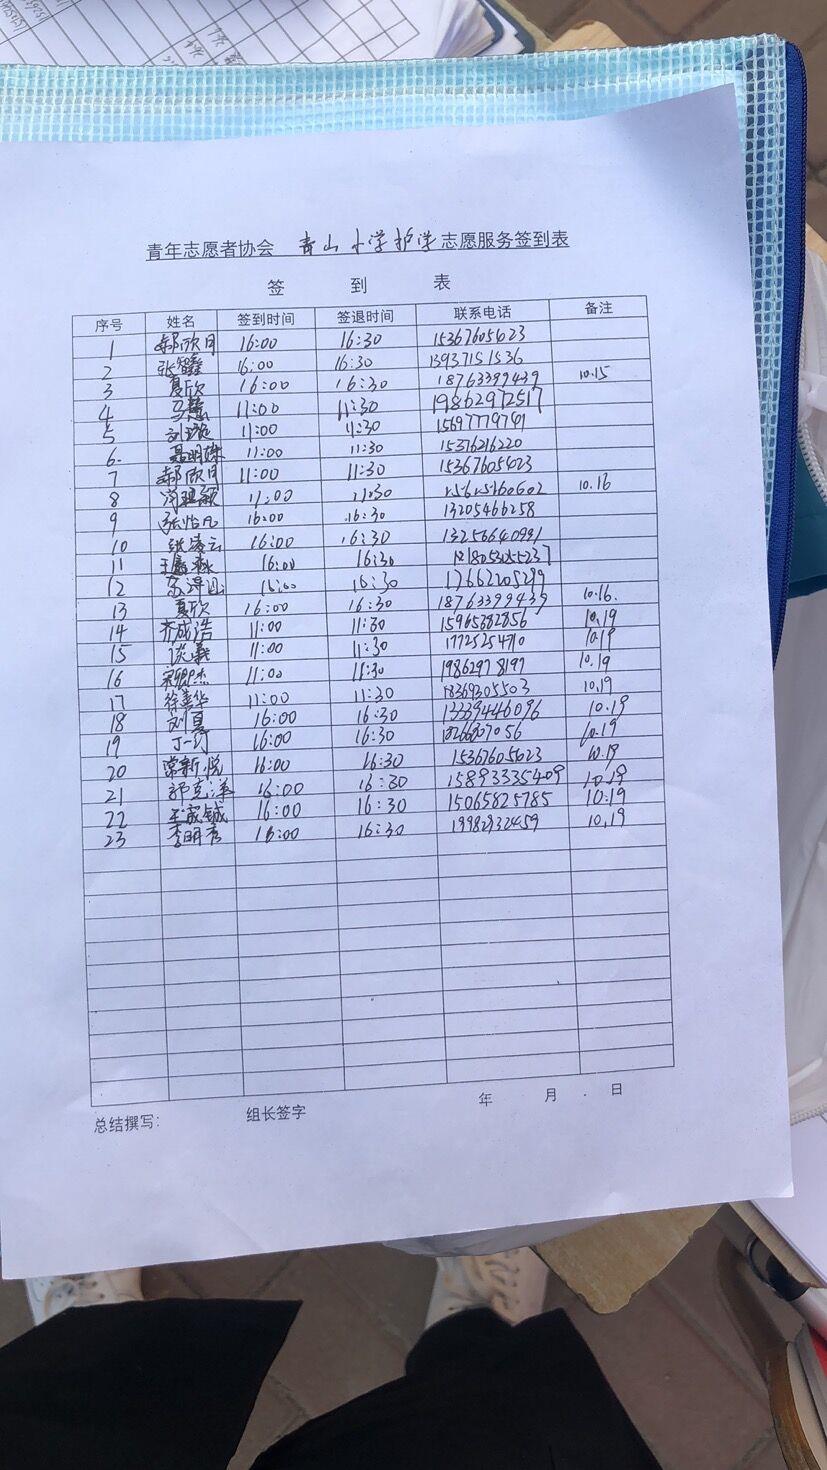 青年志愿者协会 青山小学护学志愿服务签到表
签 到 表
序号 姓名 签到时间 签退时间 联系电话 备注
1 郝欣月 16:00 16:30 15367605623
2 张馨 16:00 16:30 13937151536
3 夏欣 16:00 16:30 18763399439 10.15
4 马慧 11:00 11:30 19862972517
5 11:00 11:30
6. 聂明姝 11:00 11:30 15376216220
7 郝欣月 11:00 11:30 15367605623
8 11:00 11:30 10.16
9 张怡凡 16:00 16:30 13205466258
10 张凌云 16:00 16:30 13256640991
11 16:00 16:30
12 16:00 16:30 17662205299
13 夏欣 16:00 16:30 18763399439 10.16.
14 齐成浩 11:00 11:30 15965382856 10.19
15 11:00 11:30 17725254710 10.19
16 11:00 11:30 19862978197 10.19
17 徐善华 11:00 11:30 18369305503 10.19
18 刘夏 16:00 16:30 13339446096 10.19
19 16:00 16:30 10.19
20 常新悦 16:00 16:30 15367605623 10.19
21 郭克洋 16:00 16:30 15893335409 10.19
22 王家铖 16:00 16:30 15065825785 10.19
23 李明秀 16:00 16:30 19982932459 10.19
总结撰写: 组长签字 年 月 日